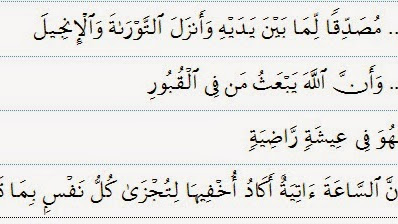 .. مُصَدِّقًا لِّمَا بَيْنَ يَدَيْهِ وَأَنزَلَ ٱلتَّوْرَىٰةَ وَٱلْإِنجِيلَ
.. وَأَنَّ ٱللَّهَ يَبْعَثُ مَن فِى ٱلْقُبُورِ
هُوَ فِى عِيشَةٍ رَّاضِيَةٍ
نَّ ٱلسَّاعَةَ ءَاتِيَةٌ أَكَادُ أُخْفِيهَا لِتُجْزَىٰ كُلُّ نَفْسٍۭ بِمَا